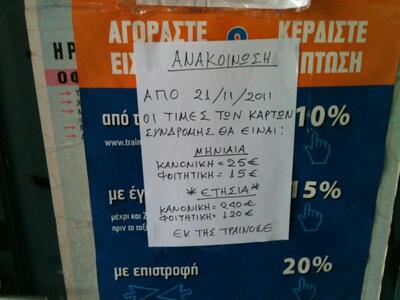 ΑΓΟΡΑΣΤΕ
ΚΕΡΔΙΣΤΕ
ΑΝΑΚΟΙΝΩΣΗ
ΑΠΟ 21/11/2011
ΟΙ ΤΙΜΕΣ ΤΩΝ ΚΑΡΤΩΝ
ΣΥΝΔΡΟΜΗΣ ΘΑ ΕΙΝΑΙ:
ΜΗΝΙΑΙΑ
ΚΑΝΟΝΙΚΗ = 25€
ΦΟΙΤΗΤΙΚΗ = 15€
*ΕΤΗΣΙΑ*
ΚΑΝΟΝΙΚΗ = 240€
ΦΟΙΤΗΤΙΚΗ = 120€
ΕΚ ΤΗΣ ΤΡΑΙΝΟΣΕ
από
10%
www.train
με
15%
μέχρι και 2
πριν το
με επιστροφή
20%